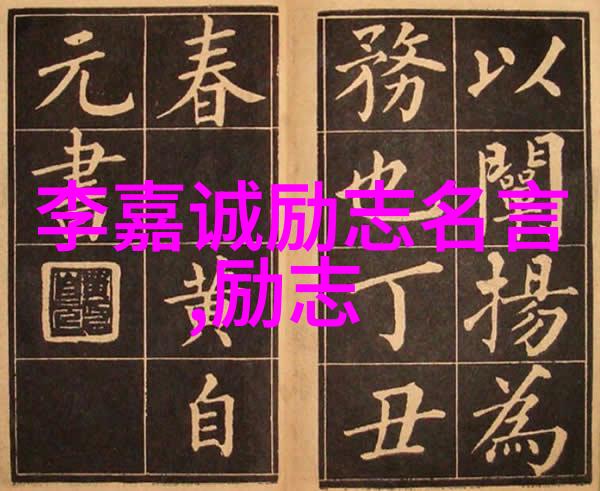 李嘉诚励志名言
,励志
以闡揚為
務也丁丑
春
黄自
元書